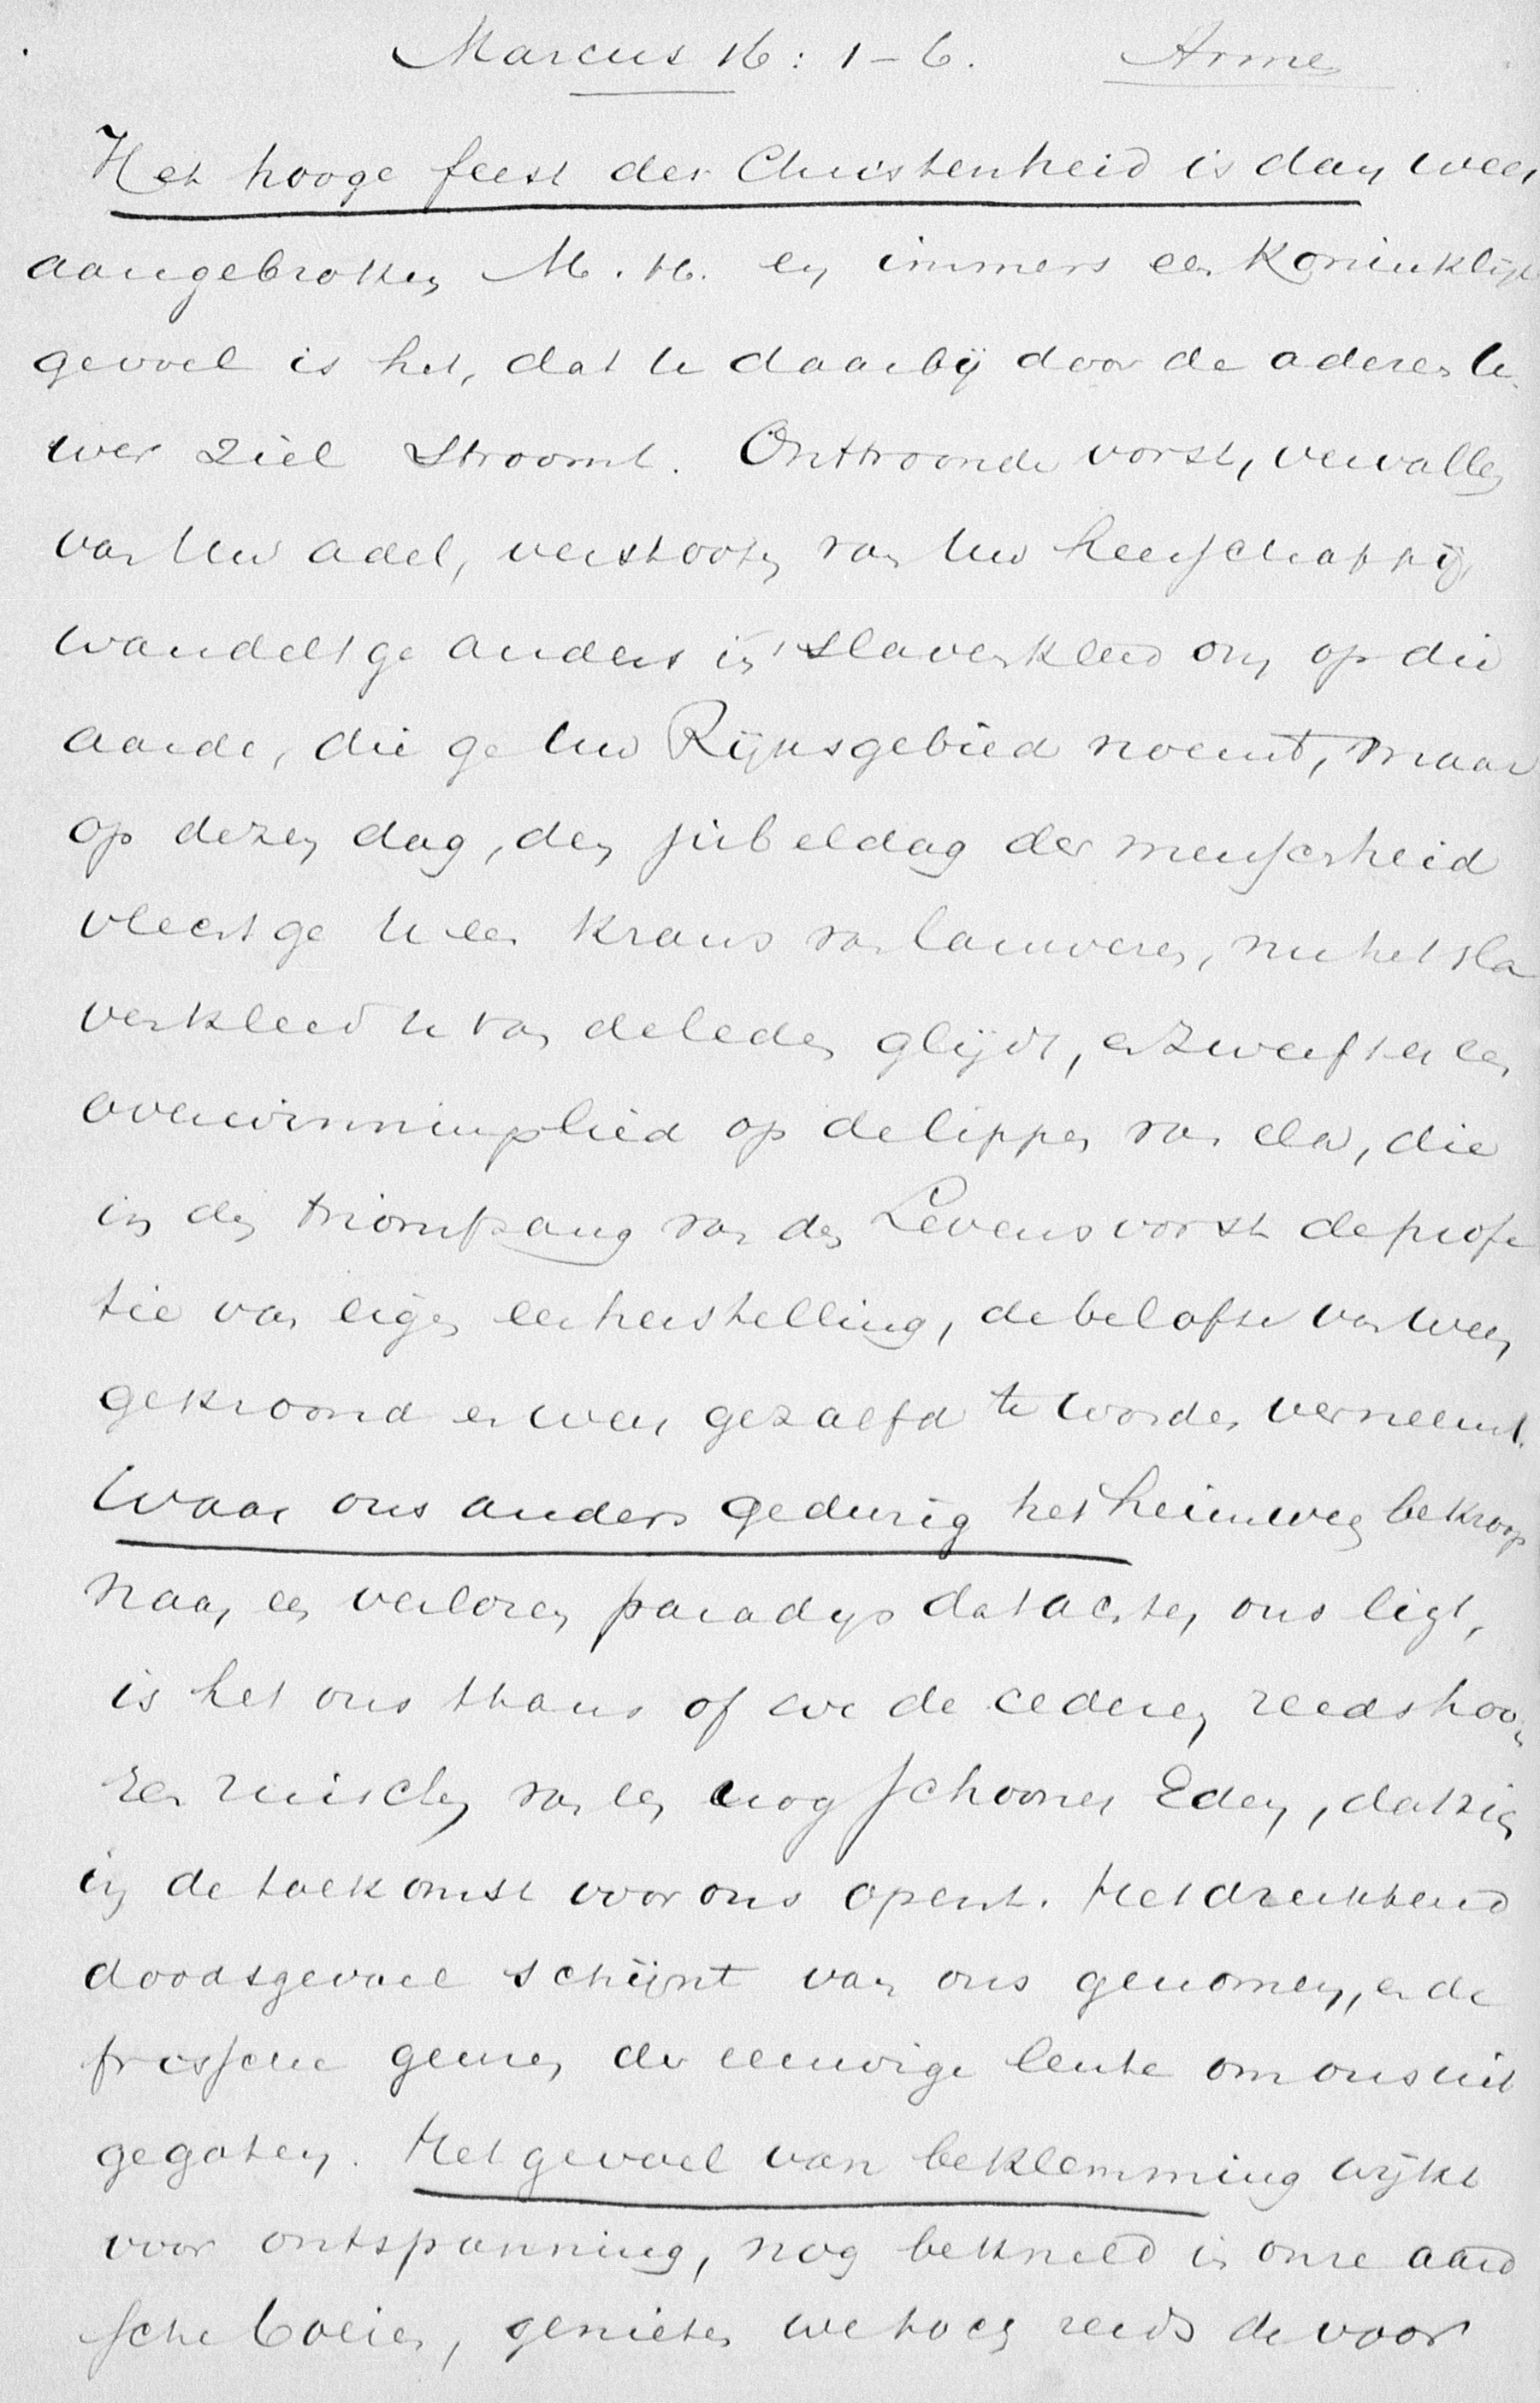 Marcus 16: 1-6. Arme
Het hooge feest der Christenheid is dan weer
aangebroken M. H. en immers een Koninklijk
gevoel is het, dat U daarbij door de aderen U-
wer ziel stroomt. Onttroonde vorst, vervallen
van Uw adel, verstooten van Uw heerschappij,
wandelt ge anders in 't slavenkleed om op die
aarde, die ge Uw Rijksgebied noemt, maar
op dezen dag, den jubeldag der menschheid
vlecht ge U een krans van lauweren, nu het sla
venkleed U van de leden glijdt, en zweeft er een
overwinningslied op de lippen van elk, die
in den triomfzang van den Levensvorst de profe
tie van eigen eerherstelling, de belofte van weer
gekroond en weer gezalfd te worden verneemt.
Waar ons anders gedurig het heimwee bekroop
naar een verloren paradijs dat achter ons ligt,
is het ons thans of we de cederen reeds hoo-
ren ruischen van een nog schooner Eden, dat zich
in de toekomst voor ons opent. Het drukkend
doodsgevoel schijnt van ons genomen, en de
frissche geuren der eeuwige lente om ons uit
gegoten. Het gevoel van beklemming wijkt
voor ontspanning, nog bekneld in onze aard
sche boeien, genieten we toch reeds de voor